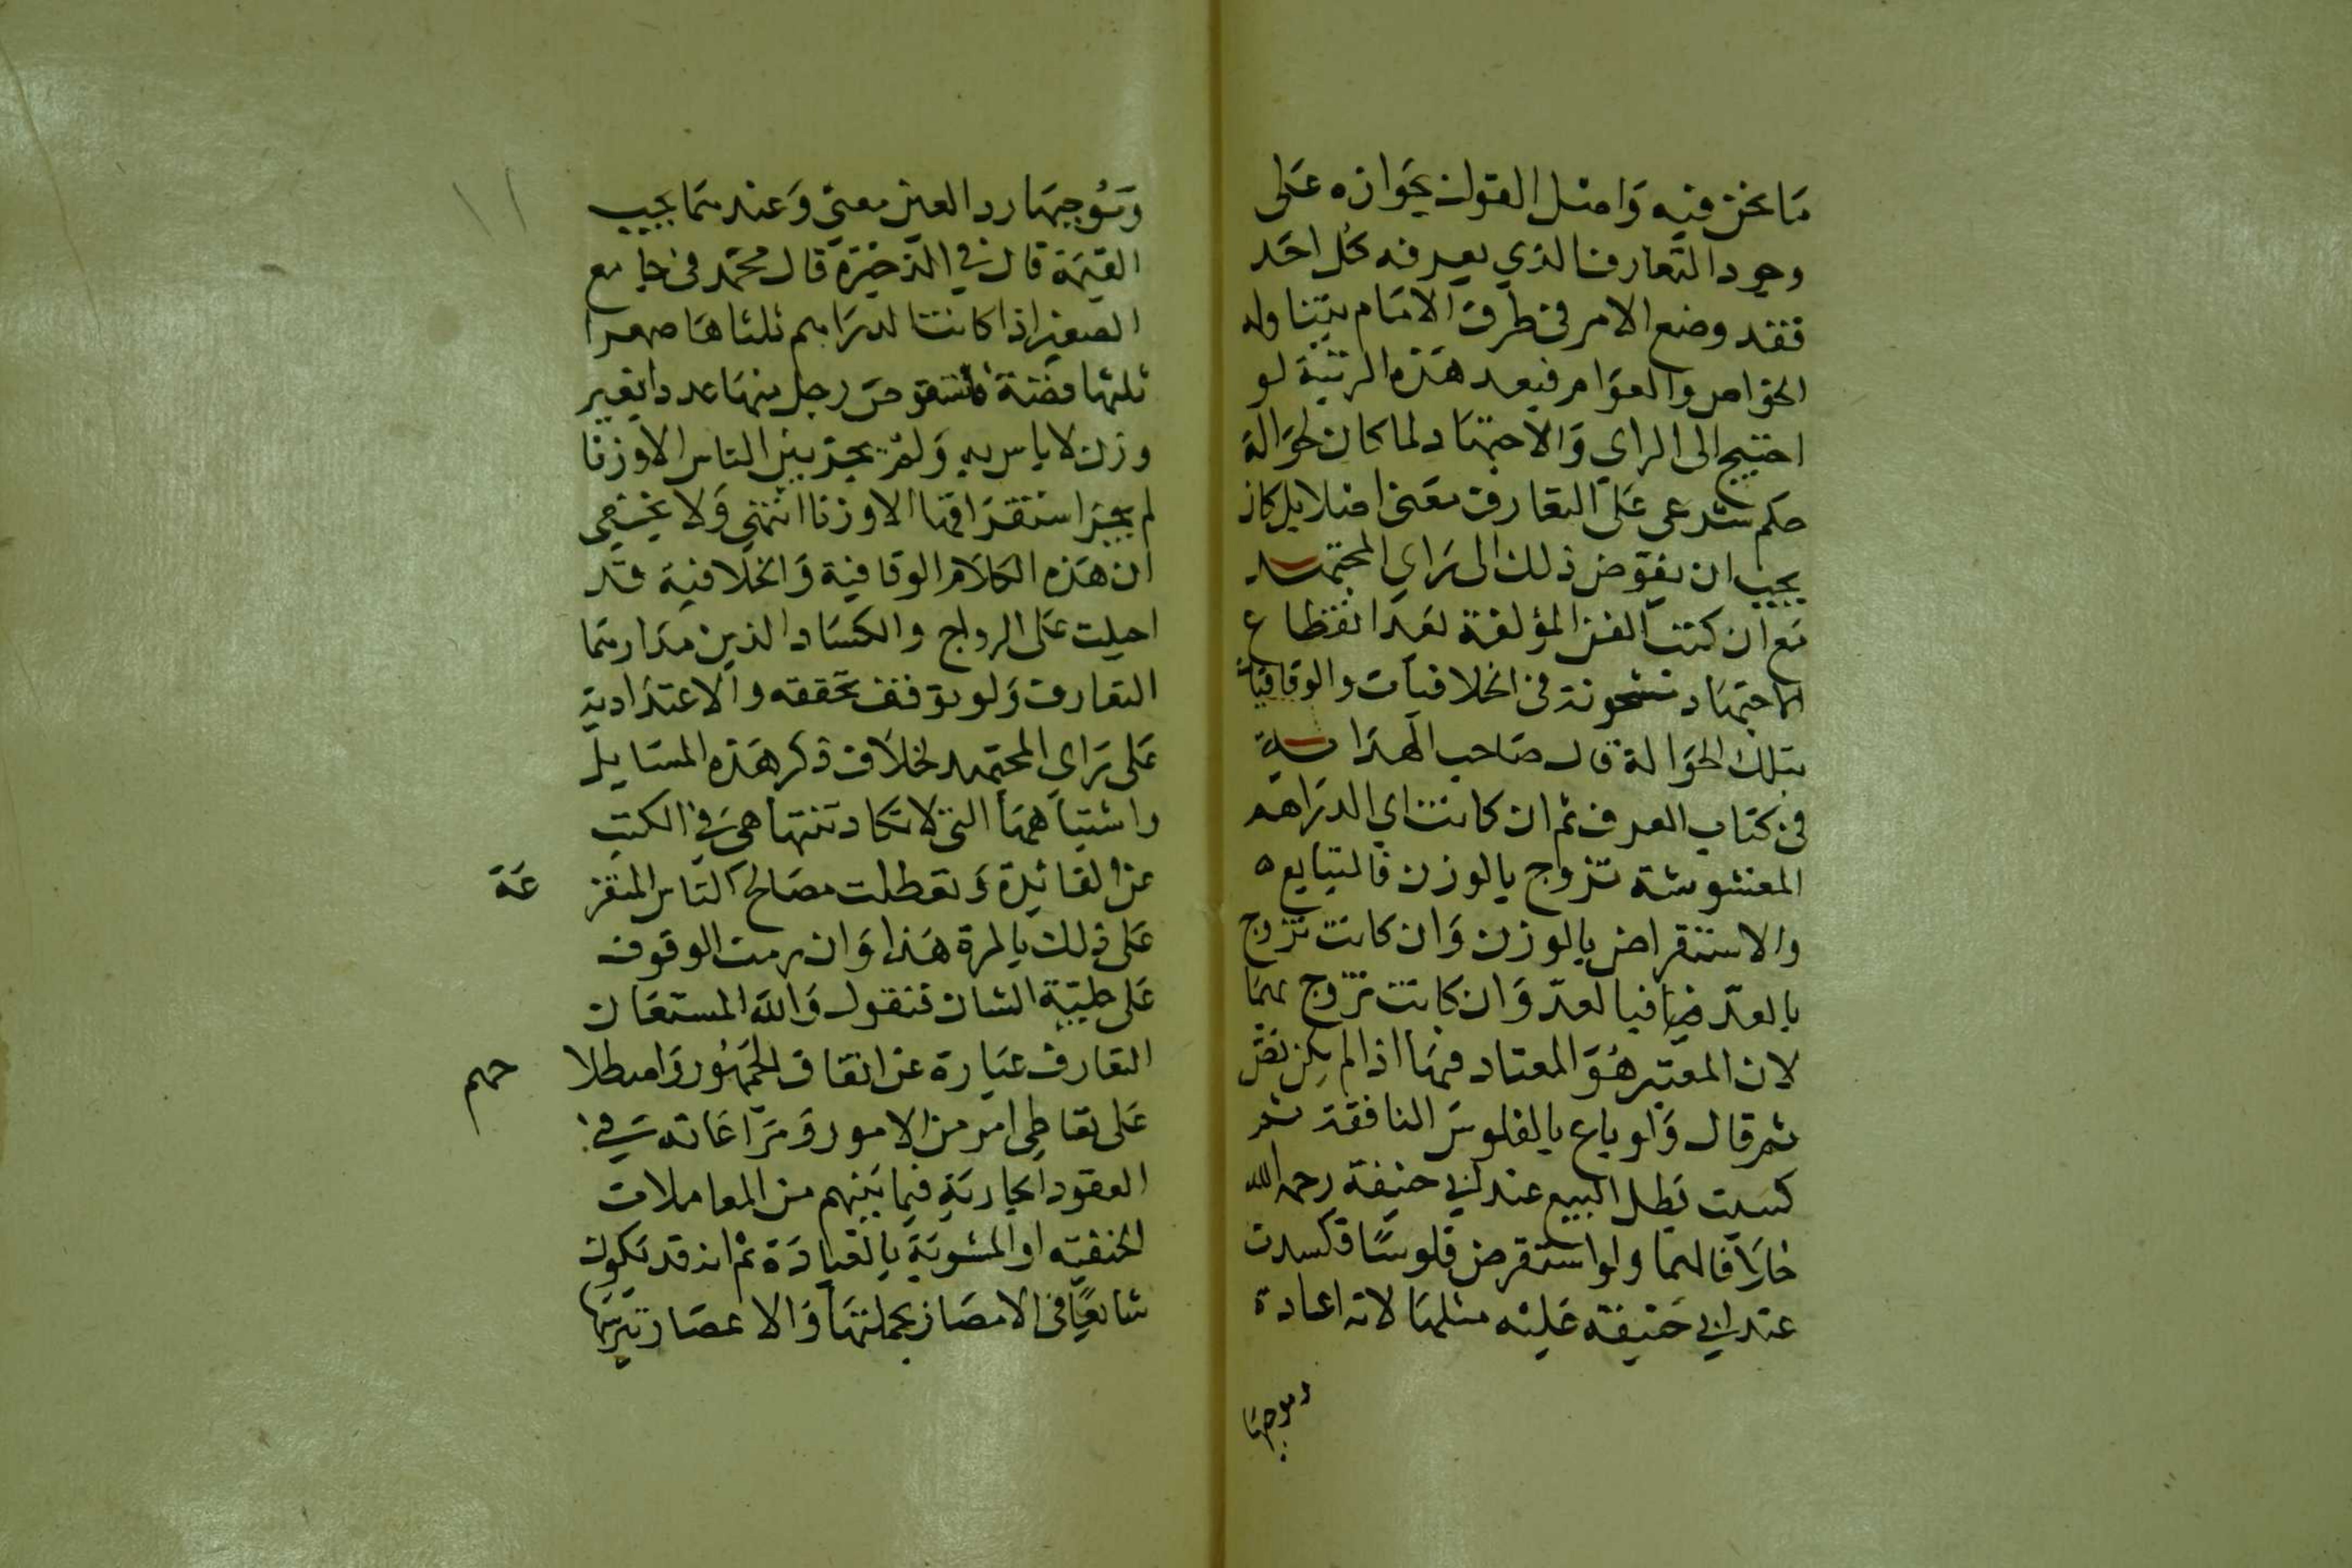 ما نحن فيه واصل القول بجوازه على
وجود التعارف الذي يعرفه كل احد
فقد وضع الامر في طرف الامام يتناوله
الخواص والعوام فبعد هذه الرتبة لو
احتيج الى الراي والاجتهاد لما كان لحوالة
حكم شرعى على التعارف معنى اصلا بل كان
يجب ان يفوض ذلك الى راي المجتهد
مع ان كتب الفن المؤلفة بعد انقطاع
الاجتهاد مشحونة في الخلافيات والوفاقيات
بتلك الحوالة قال صاحب الهداية
في كتاب الصرف ثم ان كانت اي الدراهم
المغشوشة تروج بالوزن فالتبايع
والاستقراض بالوزن وان كانت تروج
بالعد فبالعد وان كانت تروج بهما
لان المعتبر هو المعتاد فيها اذا لم يكن نص
ثم قال ولو باع بالفلوس النافقة ثم
كسدت بطل البيع عند ابي حنيفة رحمه الله
خلافا لهما ولو استقرض فلوسا فكسدت
عند ابي حنيفة عليه مثلها لانه اعادة
وموجبها
وموجبها رد العين معنى وعندهما يجب
القيمة قال في الذخيرة قال محمد في جامع
الصغير اذا كانت الدراهم ثلثاها صفرا
ثلثها فضة فاستقرض رجل منها عددا بغير
وزن لا باس به ولم يجز بين الناس الا وزنا
لم يجز استقراضها الا وزنا انتهى ولا يخفى
ان هذه الكلام الوفاقية والخلافية قد
احيلت على الرواج والكساد الذين مدارهما
التعارف ولو توقف تحققه والاعتداد به
على راي المجتهد لخلا ف ذكر هذه المسايل
واشتباهها التي لا تكاد تتناهى في الكتب
عن الفائدة وتعطلت مصالح الناس المتفرعة
على ذلك بالمرة هذا وان رمت الوقوف
على جلية الشان فنقول والله المستعان
التعارف عبارة عن اتفاق الجمهور واصطلاحهم
على تعاطي امر من الامور ومراعاته في
العقود الجارية فيما بينهم من المعاملات
الخفية او المشوبة بالعبادة ثم انه قد يكون
شايعا في الامصار بجملتها والاعصار برمتها